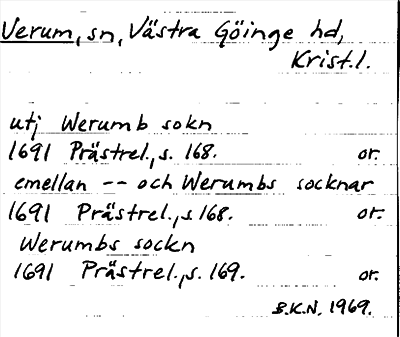 Verum, sn, Västra Göinge hd,
Krist.l.
utj Werumb sokn
1691 Prästrel., s. 168. or.
emellan -- och Werumbs socknar
1691 Prästrel., s 168. or.
Werumbs sockn
1691 Prästrel., s. 169. or.
B.K.N. 1969.